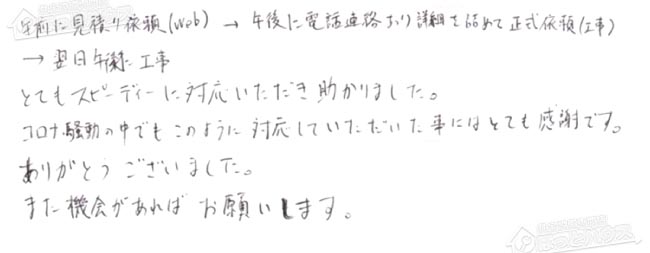 午前に見積り依頼(Web) → 午後に電話連絡あり詳細を詰めて正式依頼(工事)
→ 翌日午後に工事
とてもスピーディーに対応いただき助かりました。
コロナ騒動の中でもこのように対応していただいた事にはとても感謝です。
ありがとうございました。
また機会があればお願いします。